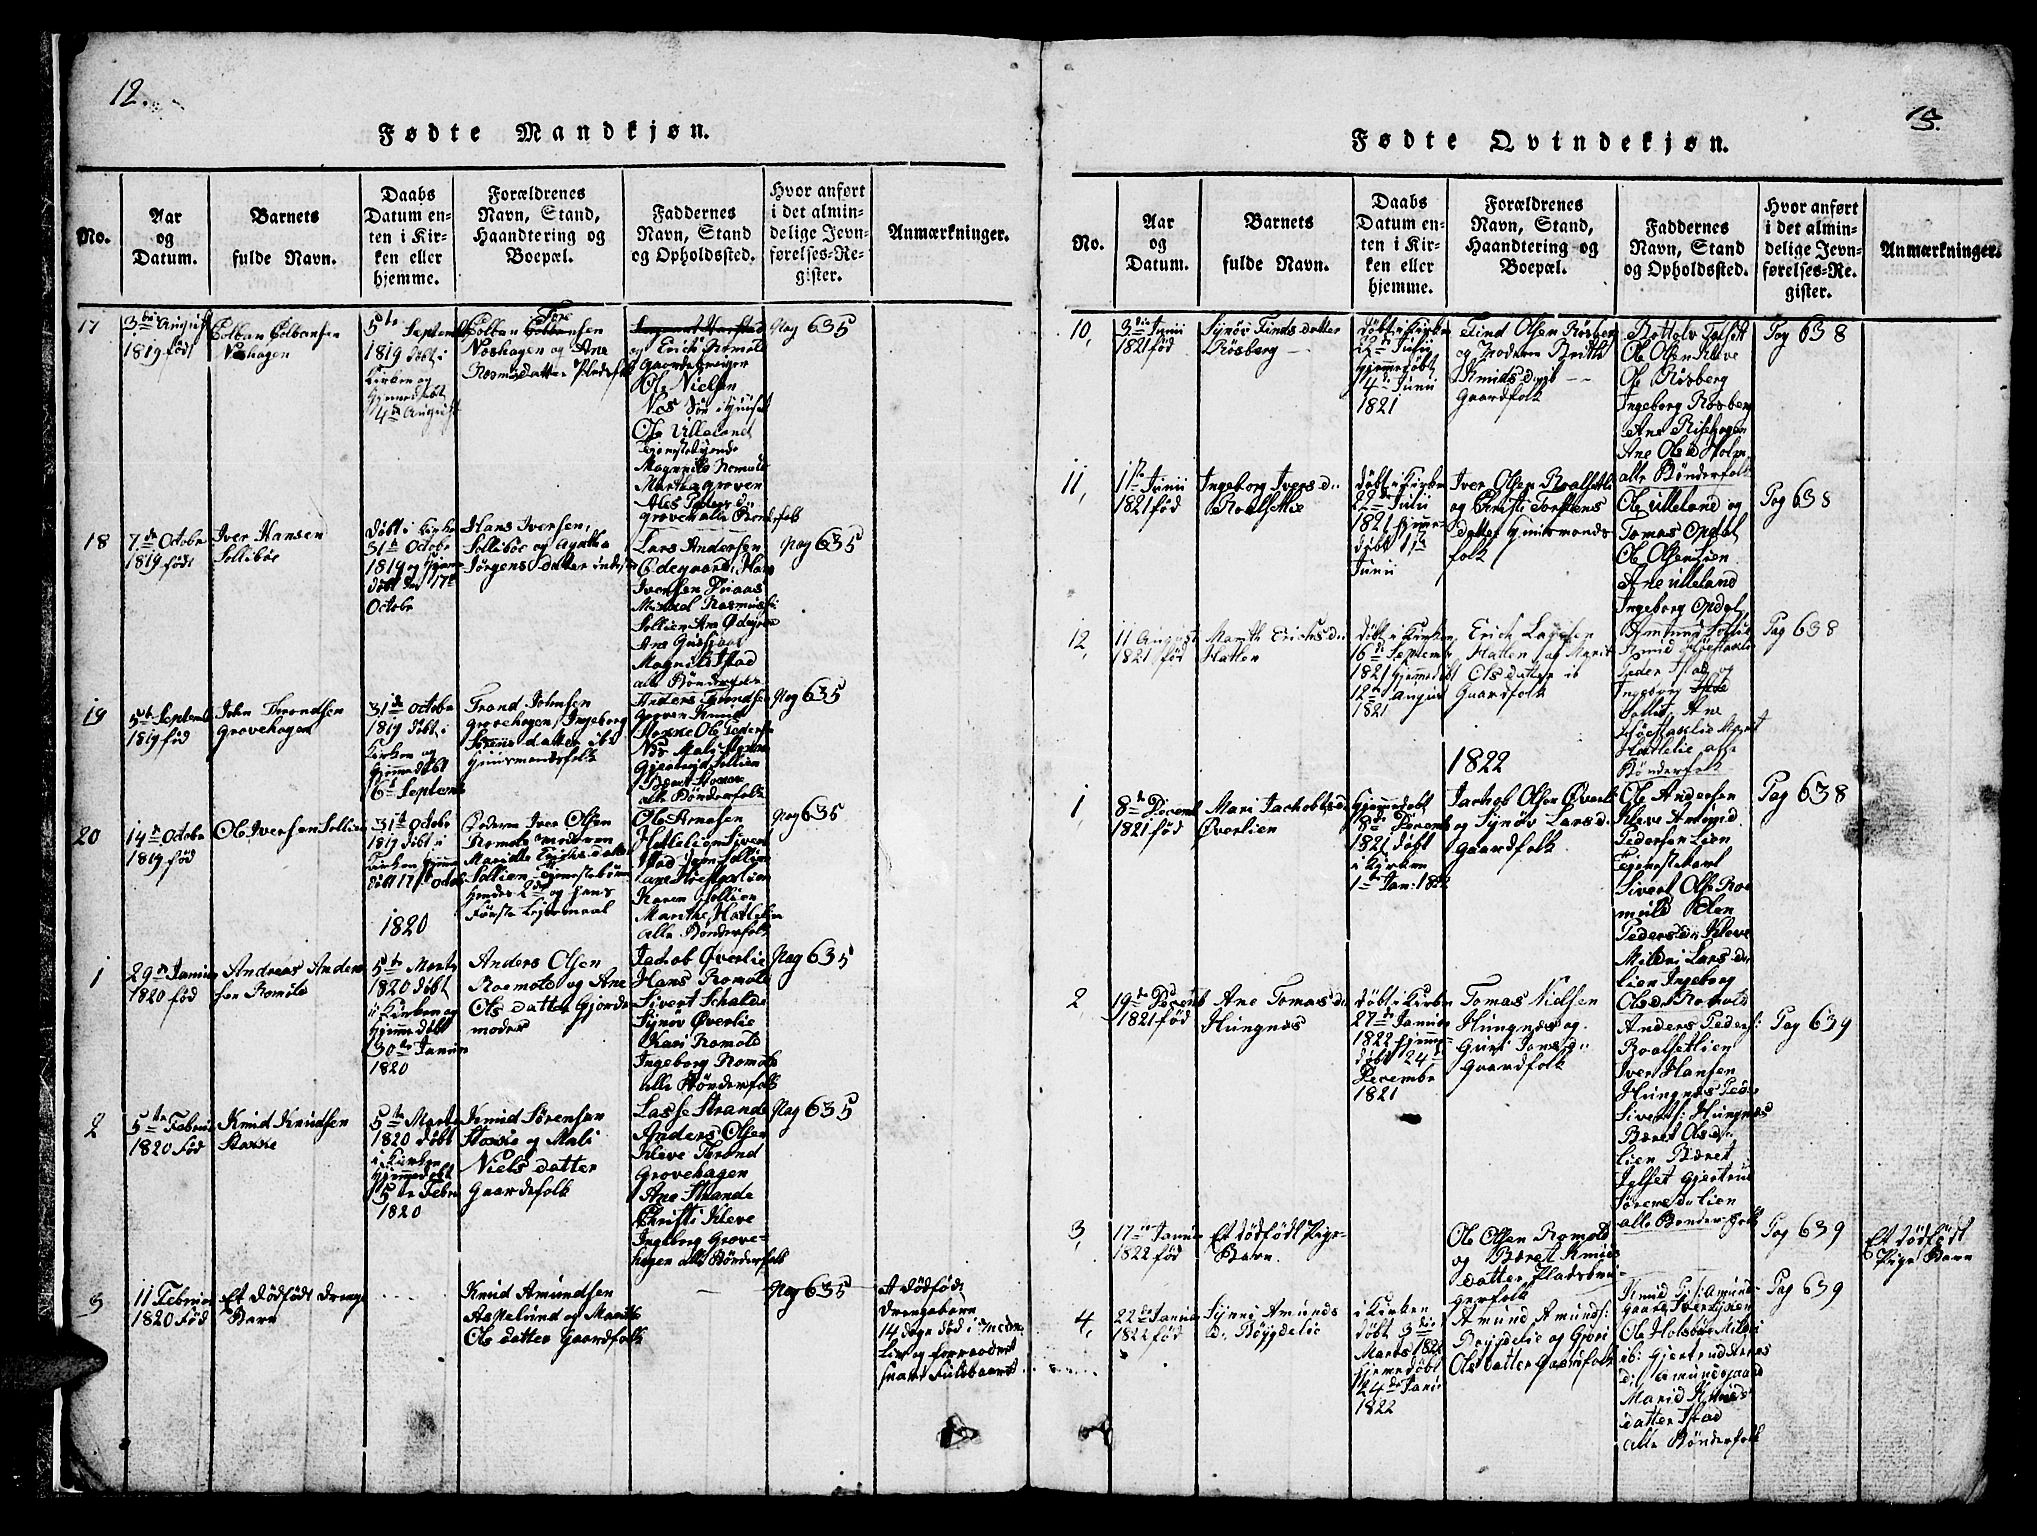 12.
Fødte Mandkjøn.
No.
Aar
og
Datum.
Barnets
fulde Navn.
Daabs
Datum en-
ten i Kir-
ken eller
hjemme.
Forældrenes
Navn, Stand,
Haandtering og
Boepæl.
Faddernes
Navn, Stand
og Opholdssted.
Hvor anført
i det almin-
delige Jevn-
førelses-Re-
gister.
Anmærkninger.
17
3die August
1819 født
Colban Colbansen
Noshagen
5te Septemb
1819 døbt i
Kirken og
hjemedøbt
4de August
Colban
Noshagen og Ane
Rasmusdatter
og Erich Romole
Gaardebruger
Ole Nielsen
Ole Villaland
Tjenestedrende
Magnild Romole
Marthe Groven
Groven alle Bønderfolk
Pag 635
18
7de Octobr
1819 født
Iver Hansen
Sollibøe
døbt i Kirken
31te Octobr
1819 og hjeme
døbt den 17de
Octobr
Hans Iversen
Sollibøe og Agathe
Jørgens datter
Lars Andersen
Ødegaard, Hans
Iversen
Michael Rasmus
Sollien Ane Ødegaard
Magnild Istad
alle Bønderfolk
Pag 635
19
5te Septemb
1819 fød
John Trondsen
Grovehagen
31te Octobr
1819 døbt i
Kirken og
hjemmedøbt
6te Septemb
Trond Johnsen
Grovehagen, Ingeborg
Sørens datter
Huusmandsfolk
Anders Trondsen
Groven Knud
Stokke Ole Peders
Gjertrud Sollien
Beret Stokke
alle Bønderfolk
Pag 635
20
14de Octobr
1819 fød
Ole Iversen Sollien
31te Octobr
1819 døbt i
Kirken hjemme
døbt 17de Octob
Faderen Iver Olsen
Romole moderen
Marithe Erichsdatter
Sollien Tjenestebørn
hendes 2de og hans
Første Lejermaal
Ole Arnesen
Hattelien Siver
Istad Iver Sollien
Lars Høestaklien
Karen Sollien
Marithe Hattelien
alle Bønderfolk
Pag 635
1820
1
29de Januar
1820 fød
Andreas Ander
sen Romole
5te Marts
1820 døbt
i Kirken og
hjemmedøbt
30te Januar
1820
Anders Olsen
Roemole og Ane
Ols datter Gjorde
moder
Jachob Øverlie
Hans Romole
Sivert Schalde
Synøv Øverlie
Kari Romole
Ingeborg Romole
alle Bønderfolk
Pag 635
2
5te Februar
1820 fød
Knud Knudsen
Stokke
5te Marts
1820 døbt
i Kirken
hjemmedøbt
5te Febr
1820
Knud Sørensen
Stokke og Mali
Niels datter
Gaardefolk
Lasse Strande
Anders Olsen
Kleve Trond
Grovehagen
Ane Strande
Christi Kleve
Ingeborg Grove-
hagen alle Bønderfolk
Pag 635
3
11 Februar
1820 fød
Et dødfødt Drenge
Barn
Knud Amundsen
Aspelund og Marithe
Ols datter Gaardfolk
Pag 635
et dødfød
Drengebarn
14 dage død i Moders
Liv og forraadnet
15.
Fødte Qvindekjøn.
No.
Aar
og
Datum.
Barnets
fulde Navn.
Daabs
Datum en-
ten i Kir-
ken eller
hjemme.
Forældrenes
Navn, Stand,
Haandtering og
Boepæl.
Faddernes
Navn, Stand
og Opholdssted.
Hvor anført
i det almin-
delige Jevn-
førelses-Re-
gister.
Anmærkninger.
10,
3die Junii
1821 fød
Synøv Finds datter
Røsberg
døbt i Kirken
22de Julii
hjemedøbt
4de Junii
1821
Find Olsen Røsberg
og Moderen Brith
Knuds datter
Gaardfolk
Ole Olsen Kleve
Ole Røsberg
Ingeborg Røsberg
Ane Risehagen
Ane Ols d. Holm
alle Bønderfolk
Pag 638
11,
11te Junii
1821 fød
Ingeborg Ivers d:
Roalsetlie
døbt i Kirken
22de Julii
1821 hjemme
døbt
Junii
Iver Olsen Roalsetlie
og Christi Torstens
datter Huusmands
folk
Ole Villeland og
Tomas Opdal
Ole Olsen Lien
Ane Villeland
Ingeborg Opdal
Pag 638
12,
11 August
1821 fød
Marith Erichs d:
Hatlen
døbt i Kirken
16de September
1821 hjemedøbt
12te August
1821
Erich Larsen
Hatlen og Marit
Ols datter
Gaardfolk
Amund Sollie
Knud Høestaklie
Peder Istad og
Ingeborg
Sollie, Ane
Høestaklie Marit
Hattelie alle
Bønderfolk
Pag 638
1822
1
8de Decemb
1821 fød
Mari Jachobs d:
Øverlien
hjemmedøbt
8de Decemb
1821 døbt
i Kirken
1te Jan: 1822
Jachob Olsen Øverli
og Synøv Lars d.
Gaardfolk
Ole Andersen
Kleve Amund
Pedersen Lien
Tejenestekarl
Sivert Olsen Ro
mole
Peders d: Kleve
Mildri Lars d:
Lien Ingeborg
Ols d: Romole
Pag 638
2
19de Decemb
1821 fød
Ane Tomas d:
Hungnes
døbt i Kirken
27de Januar
1822 hjemme-
døbt 24de
Decembr
1821
Tomas Nielsen
Hungnes og
Guri Jons d:
Gaardfolk
Anders Peders:
Roalsetlien
Iver Hansen
Hungnes Peder
Siverts: Hungnes
Beret Ols d:
Lien Beret
Jelset Gjertrud
Sørens d: Lien
alle Bønderfolk
Pag 639
3,
17de Januar
1822 fød
Et dødfødt Pige-
Barn
Ole Olsen Romole
og Beret Knuds
datter Pladsbru-
gerfolk
Pag 639
Et dødfødt
Pige Barn
4,
22de Januar
1822 fød
Synnv Amunds
d: Bøigdelie
i Kirken
døbt 3die
Marts 1822
hjemedøbt
24de Janu
1822
Amund Amunds:
Bøigdelie og Guri
Ols datter Gaardfolk
Ole Holsbøe Mildri
ib: Gjertrud Arnes
d: Amundgaard
Marid Knuds
datter Istad
alle Bønderfolk
Pag 639